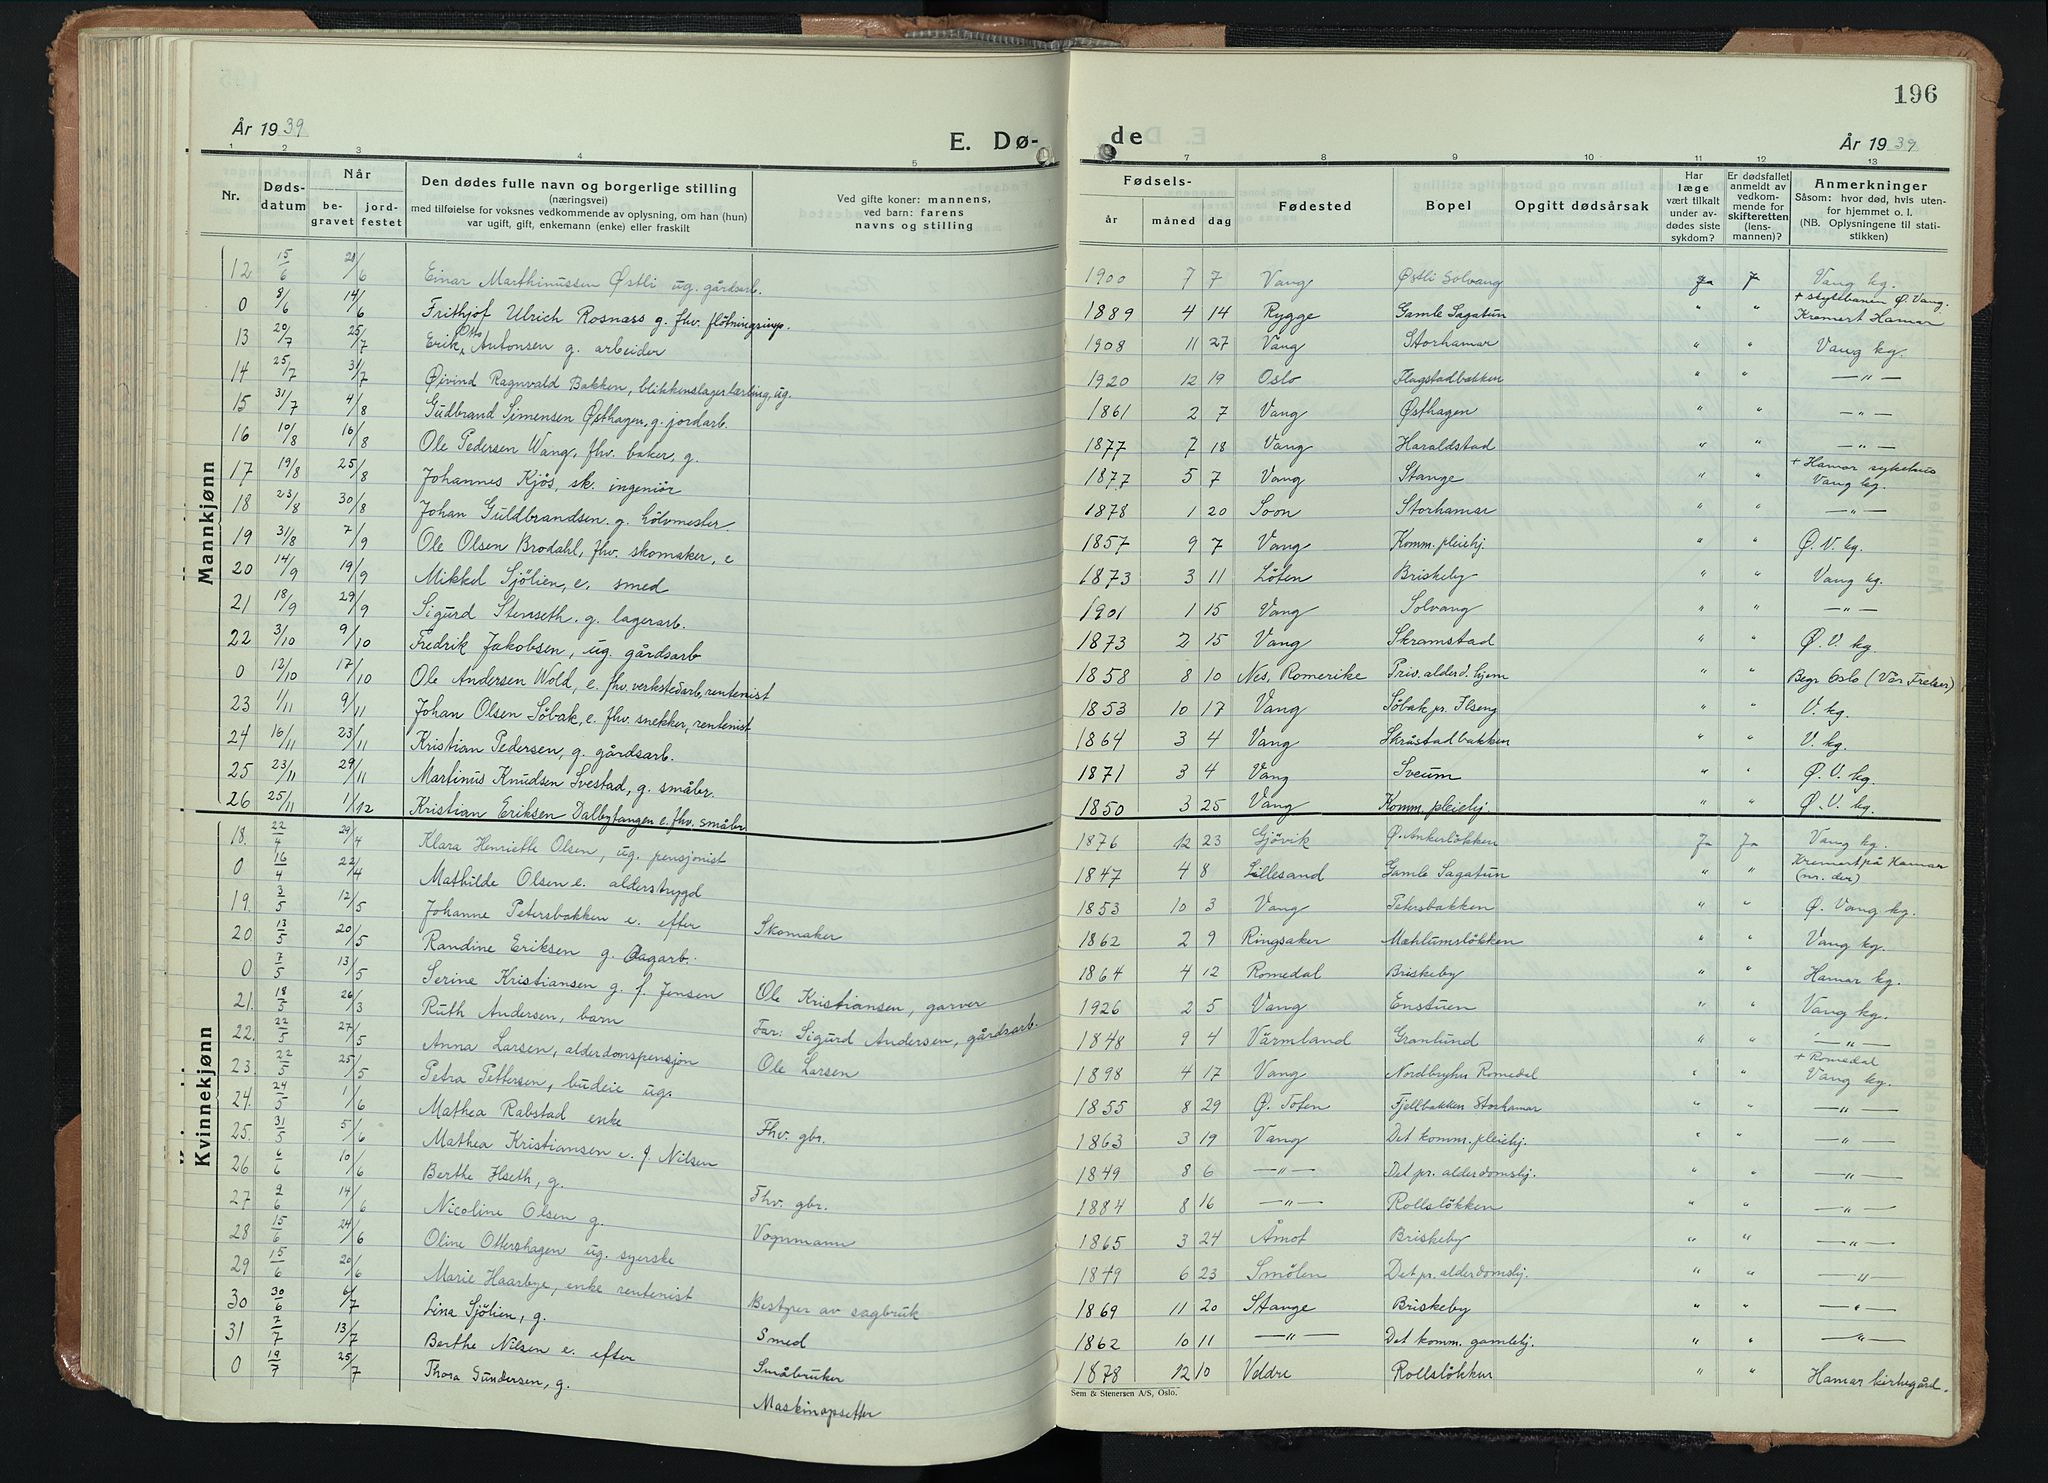 196
År 1939
E. Dø-
de
År 1939
1 2 3 4 5 7 8 9 10 11 12 13
Nr.
Døds-
datum
Når
be-
gravet
jord-
festet
Den dødes fulle navn og borgerlige stilling
(næringsvei)
med tilføielse for voksnes vedkommende av oplysning, om han (hun)
var ugift, gift, enkemann (enke) eller fraskilt
Ved gifte koner: mannens,
ved barn: farens
navns og stilling
Fødsels-
år måned dag
Fødested
Bopel
Opgitt dødsårsak
Har
læge
vært tilkalt
under av-
dødes siste
sykdom?
Er dødsfallet
anmeldt av
vedkom-
mende for
skifteretten
(lens-
mannen)?
Anmerkninger
Såsom: hvor død, hvis uten-
for hjemmet o. l.
(NB. Oplysningene til stati-
stikken)
Mannkjønn
12 15/6 21/6 Einar Marthinussen Østli ug. gårdsarb. 1900 7 7 Vang Østli Solvang Ja J Vang kg.
0 8/6 14/6 Frithjof Ulrich Rosnæss g. fhv. fløtningsinsp. 1889 4 14 Rygge Gamle Sagatun " " + skytebanen Ø. Vang.
Kremert Hamar
13 20/7 25/7 Erik Otto Antonsen g. arbeider 1908 11 27 Vang Storhamar " " Vang kg.
14 25/7 31/7 Øivind Ragnvald Bakken, blikkenslagerlærling, ug. 1920 12 19 Oslo Flagstadbakken " " —"—
15 31/7 4/8 Gudbrand Simensen Østhagen, g. jordarb. 1861 2 7 Vang Østhagen " " —"—
16 10/8 16/8 Ole Pedersen Wang, fhv. baker, g. 1877 7 18 Vang Haraldstad " " —"—
17 19/8 25/8 Johannes Kjøs, sk. ingeniør 1877 5 7 Vang Stange " " + Hamar sykehus
Vang kg.
18 23/8 30/8 Johan Guldbrandsen g. hølvmester 1878 1 20 Soon Storhamar " " —"—
19 31/8 7/9 Ole Olsen Brodahl, fhv. skomaker, e 1857 9 7 Vang Komm. pleiehj. " " Ø. V. kg.
20 14/9 19/9 Mikkel Sjølien, e. smed 1873 3 11 Løten Briskeby " " Vang kg.
21 18/9 29/9 Sigurd Stenseth g. lagerarb. 1901 1 15 Vang Solvang " " —"—
22 3/10 9/10 Fredrik Jakobsen, ug. gårdsarb 1873 2 15 Vang Skramstad " " Ø. V. kg.
0 12/10 17/10 Ole Andersen Wold, e. fhv. verkstedarb, rentenist 1858 8 10 Nes, Romerike Priv. alderd. hjem " " Begr Oslo (Vår Frelser)
23 1/11 9/11 Johan Olsen Søbak, e. fhv. snekker, rentenist 1853 10 17 Vang Søbak pr. Ilseng " " V. kg.
24 16/11 23/11 Kristian Pedersen, g. gårdsarb. 1864 3 4 Vang Skråstadbakken " " V. kg.
25 23/11 29/11 Martinus Knudsen Svestad, g. småbr. 1871 3 4 Vang Sveum " " Ø. V. kg.
26 25/11 1/12 Kristian Eriksen Dalbytangen e. fhv. småbr 1850 3 25 Vang Komm. pleiehj. " " Ø. V. kg.
Kvinnekjønn
18. 22/4 29/4 Klara Henriette Olsen, ug. pensjonist 1876 12 23 Gjøvik Ø. Ankerløkken Ja Ja Vang kg.
0 16/4 22/4 Mathilde Olsen e. alderstrygd 1847 4 8 Lillesand Gamle Sagatun " " Kremert på Hamar
(nr. der)
19. 3/5 12/5 Johanne Petersbakken e. efter Skomaker 1853 10 3 Vang Petersbakken " " Ø. Vang kg.
20 13/5 20/5 Randine Eriksen g. Dagarb. 1862 2 9 Ringsaker Mæhlumsløkken " " Vang kg.
0 7/5 13/5 Serine Kristiansen g. f. Jensen Ole Kristiansen, garver 1864 4 12 Romedal Briskeby " " Hamar kg.
21. 18/5 26/3 Ruth Andersen, barn Far: Sigurd Andersen, gårdsarb. 1926 2 5 Vang Enstuen " " Vang kg.
22. 22/5 27/5 Anna Larsen, alderdomspensjon Ole Larsen 1848 9 4 Värmland Granlund " " —"—
23. 22/5 25/5 Petra Pettersen, budeie ug. 1898 4 17 Vang Nordbyhu Romedal " " + Romedal
Vang kg.
24. 24/5 1/6 Mathea Rabstad enke Fhv. gbr. 1855 8 29 Ø. Toten Fjellbakken Storhamar " " —"—
25. 31/5 5/6 Mathea Kristiansen e. f Nilsen 1863 3 19 Vang Det komm. pleiehj. " " —"—
26 6/6 10/6 Berthe Hseth, g. Fhv. gbr. 1849 8 6 —"— Det pr. alderdomshj. " " —"—
27 9/6 14/6 Nicoline Olsen g. Vognmann 1884 8 16 —"— Rollsløkken " " —"—
28 15/6 24/6 Oline Ottershagen ug. syerske 1865 3 24 Åmot Briskeby " " —"—
29 15/6 20/6 Marie Haarbye, enke rentenist Bestyrer av sagbruk 1849 6 23 Smølen Det pr. alderdomshj. " " —"—
30 30/6 6/7 Lina Sjølien, g. Smed 1869 11 20 Stange Briskeby " " —"—
31 7/7 13/7 Berthe Nilsen e. efter Småbruker 1862 10 11 —"— Det komm. gamlehj. " " —"—
0 19/7 25/7 Thora Gundersen, g. Maskinopsetter 1878 12 10 Veldre Rollsløkken " " Hamar kirkegård.
Sem & Stenersen A/S, Oslo.